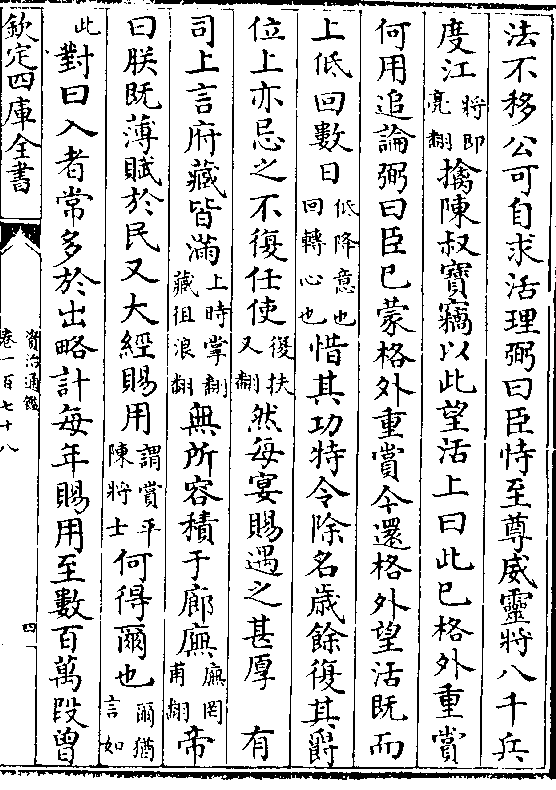 法不移公可自求活理弼曰臣恃至尊威靈將八千兵
度江將即亮翻擒陳叔寶竊以此望活上曰此已格外重賞
何用追論弼曰臣已蒙格外重賞今還格外望活既而
上低回數日低降意也回轉心也惜其功特令除名歲餘復其爵
位上亦忌之不復任使復扶又翻然每宴賜遇之甚厚 有
司上言府藏皆滿上時掌翻藏徂浪翻無所容積于廊廡廡罔甫翻帝
曰朕既薄賦於民又大經賜用謂賞平陳將士何得爾也爾猶言如
此對曰入者常多於出略計每年賜用至數百萬段曾
欽定四庫全書
資治通鑑
卷一百七十八
四